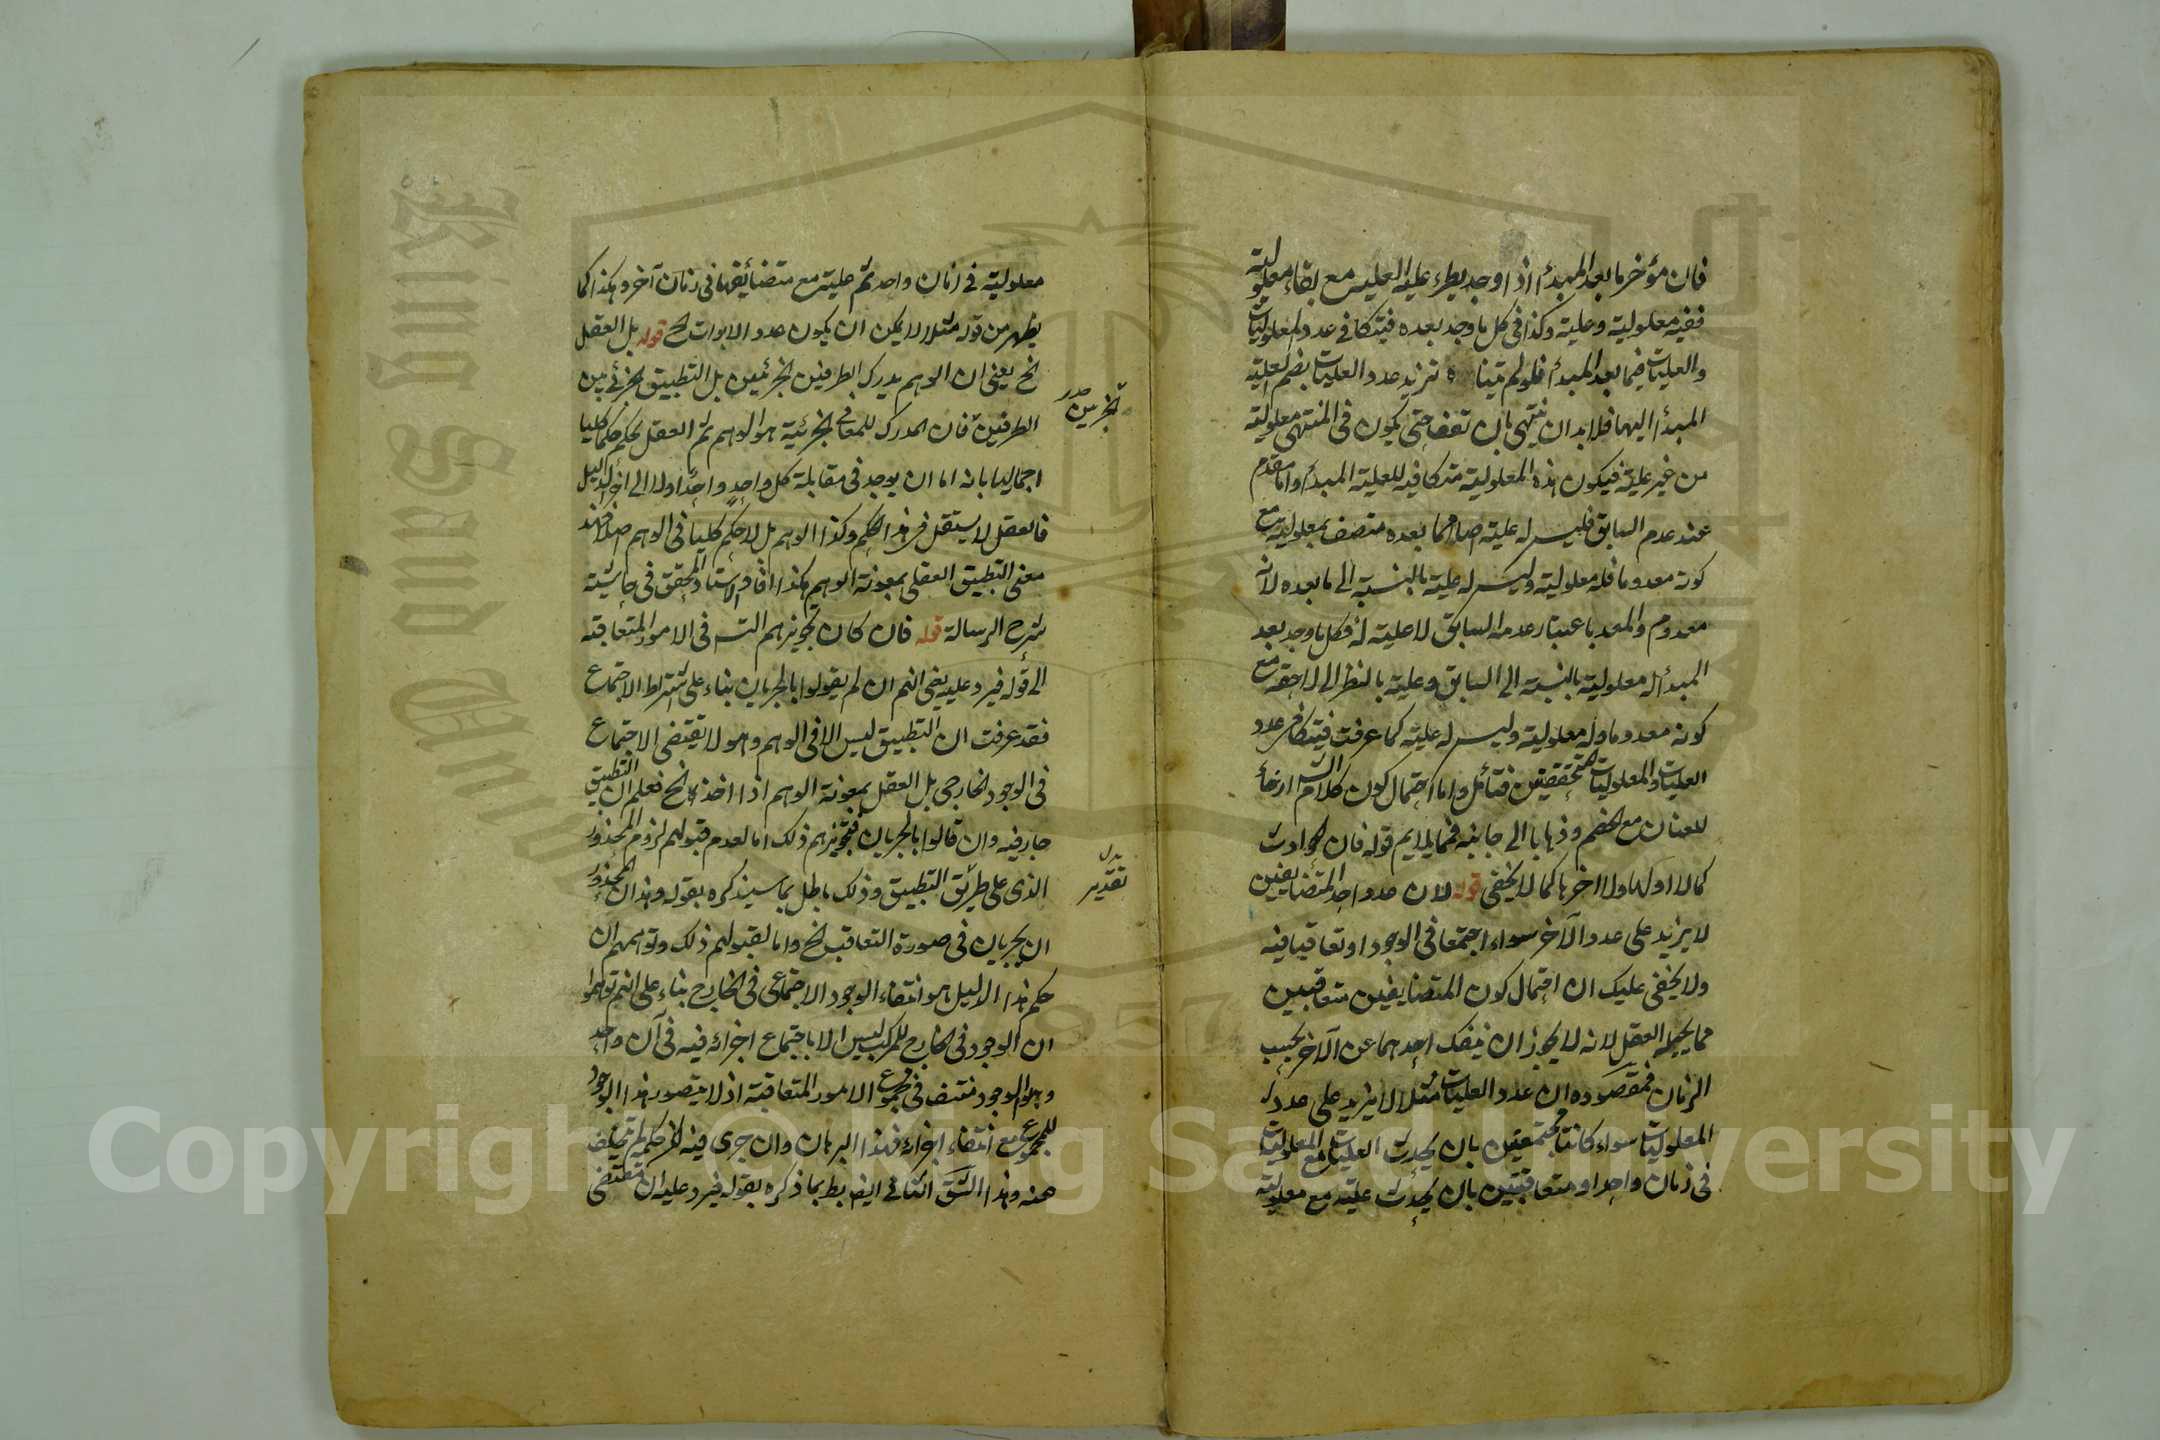 فان مؤخر ما بعد المبدأ اذا وجد يطرء عليه العليه مع بقاء معلوليته
ففيه معلولية وعلية وكذا في كل ما وجد بعده فيتكافى عدد المعلوليات
والعليات فيما بعد المبدأ فلو لم يتناه تزيد عدد العليات بضم العلية
المبدأ اليها فلابد ان ينتهي بان تقف حتى يكون في المنتهى معلولية
من غير علية فيكون هذه المعلولية متكافيه للعلية المبدأ واما مقدم
عند عدم السابق فليس له علية اصلا مما بعده متصف بمعلوليته مع
كونه معدوما فله معلولية وليس له علية بالنسبة الى ما بعده لانه
معدوم والمعد باعتبار عدمه السابق لا علية له فكل ما وجد بعد
المبدأ له معلولية بالنسبة الى السابق وعلية بالنظر الى لاحقه مع
كونه معدوما وله معلولية وليس له علية كما عرفت فيتكافى عدد
العليات والمعلوليات المتحققتين فتأمل واما احتمال كون كلام الش ارخاء
للعنان مع الخصم وذهابا الى جانبه فمما يلايم قوله فان الحوادث
كما لا اول لها ولا اخر لها كما لا يخفى قوله لان عدد احد المتضايفين
لا يزيد على عدد الآخر سواء اجتمعا في الوجود او تعاقبا فيه
ولا يخفى عليك ان احتمال كون المتضايفين متعاقبين
مما يحيله العقل لانه لا يجوز ان ينفك احدهما عن الآخر بحسب
الزمان فمقصوده ان عدد العليات مثلا لا يزيد على عدد
المعلوليات سواء كانتا مجتمعتين بان يحدث العليات مع المعلوليات
في زمان واحد او متعاقبتين بان يحدث علية مع معلولية
معلولية في زمان واحد ثم علية مع متضائفها في زمان آخر وهكذا كما
يظهر من قوله مثلا لا يمكن ان يكون عدد الابوات الخ قوله بل العقل
الخ يعني ان الوهم يدرك الطرفين الجزئيين بل التطبيق الجزئي بين
الطرفين فان المدرك للمعاني الجزئية هو الوهم ثم العقل يحكم حكما كليا
اجماليا بانه اما ان يوجد في مقابلة كل واحد واحد اولا الى آخر الدليل
فالعقل لا يستقل في هذا الحكم وكذا الوهم بل لا حكم كليا في الوهم اصلا فهذا
معنى التطبيق العقلي بمعونة الوهم هكذا افاد الاستاد المحقق في حاشية
شرح الرسالة قوله فان كان تجويزهم التس في الامور المتعاقبة
الى قوله فيرد عليه يعني انهم ان لم يقولوا بالجريان بناء على اشتراط الاجتماع
فقد عرفت ان التطبيق ليس الا في الوهم وهو لا يقتضى الاجتماع
في الوجود الخارجي بل العقل بمعونة الوهم اذا اخذ الخ فعلم ان التطبيق
جار فيه وان قالوا بالجريان فتجويزهم ذلك اما لعدم قبولهم لزوم المحذور
الذي على طريق التطبيق وذلك باطل بما سيذكره بقوله وهذا المحذور
ان يجريان في صورة التعاقب الخ واما لقبولهم ذلك وتوهمهم ان
حكم هذا الدليل هو انتفاء الوجود الاجتماعي في الخارج بناء على انهم توهموا
ان الوجود في الخارج للمركب ليس الا باجتماع اجزائه فيه في آن واحد
وهذا الوجود منتف في مجموع الامور المتعاقبة اذ لا يتصور هذا الوجود
للمجموع مع انتفاء اجزائه فهذا البرهان وان جرى فيه لكن حكمه لم يتخلف
عنه وهذا الشق الثاني ايضا بط بما ذكره بقوله فيرد عليه ان مقتضى
تقدير
King Saud University
1957
Copyright © King Saud University